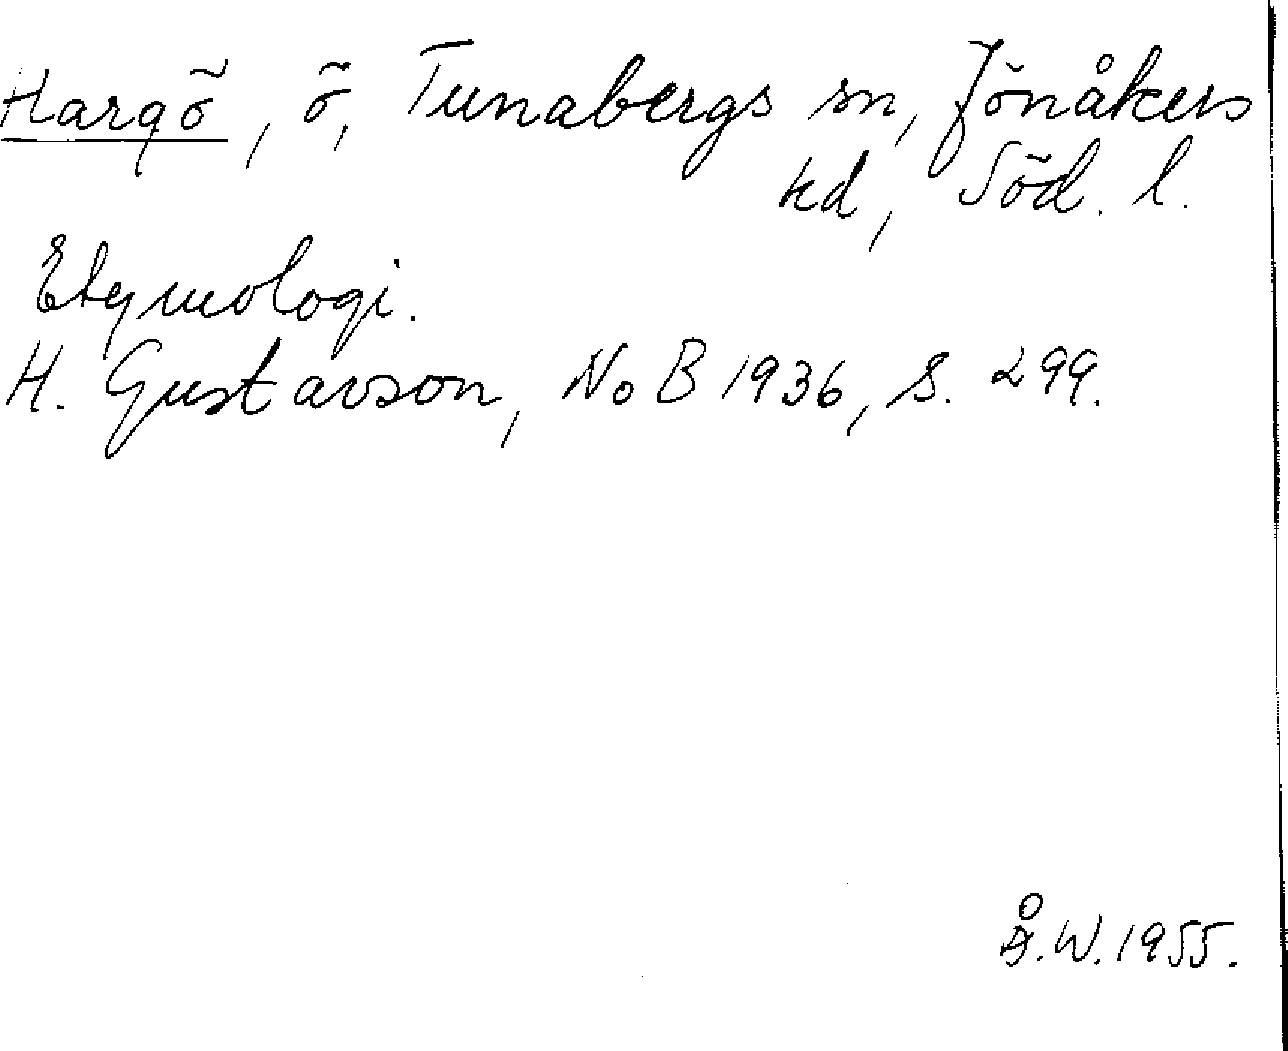 Hargö, ö, Tunabergs sn, Jönåkers
hd, Söd. l.
Etymologi.
H. Gustavson, NoB 1936, s. 299.
Å.W. 1955.